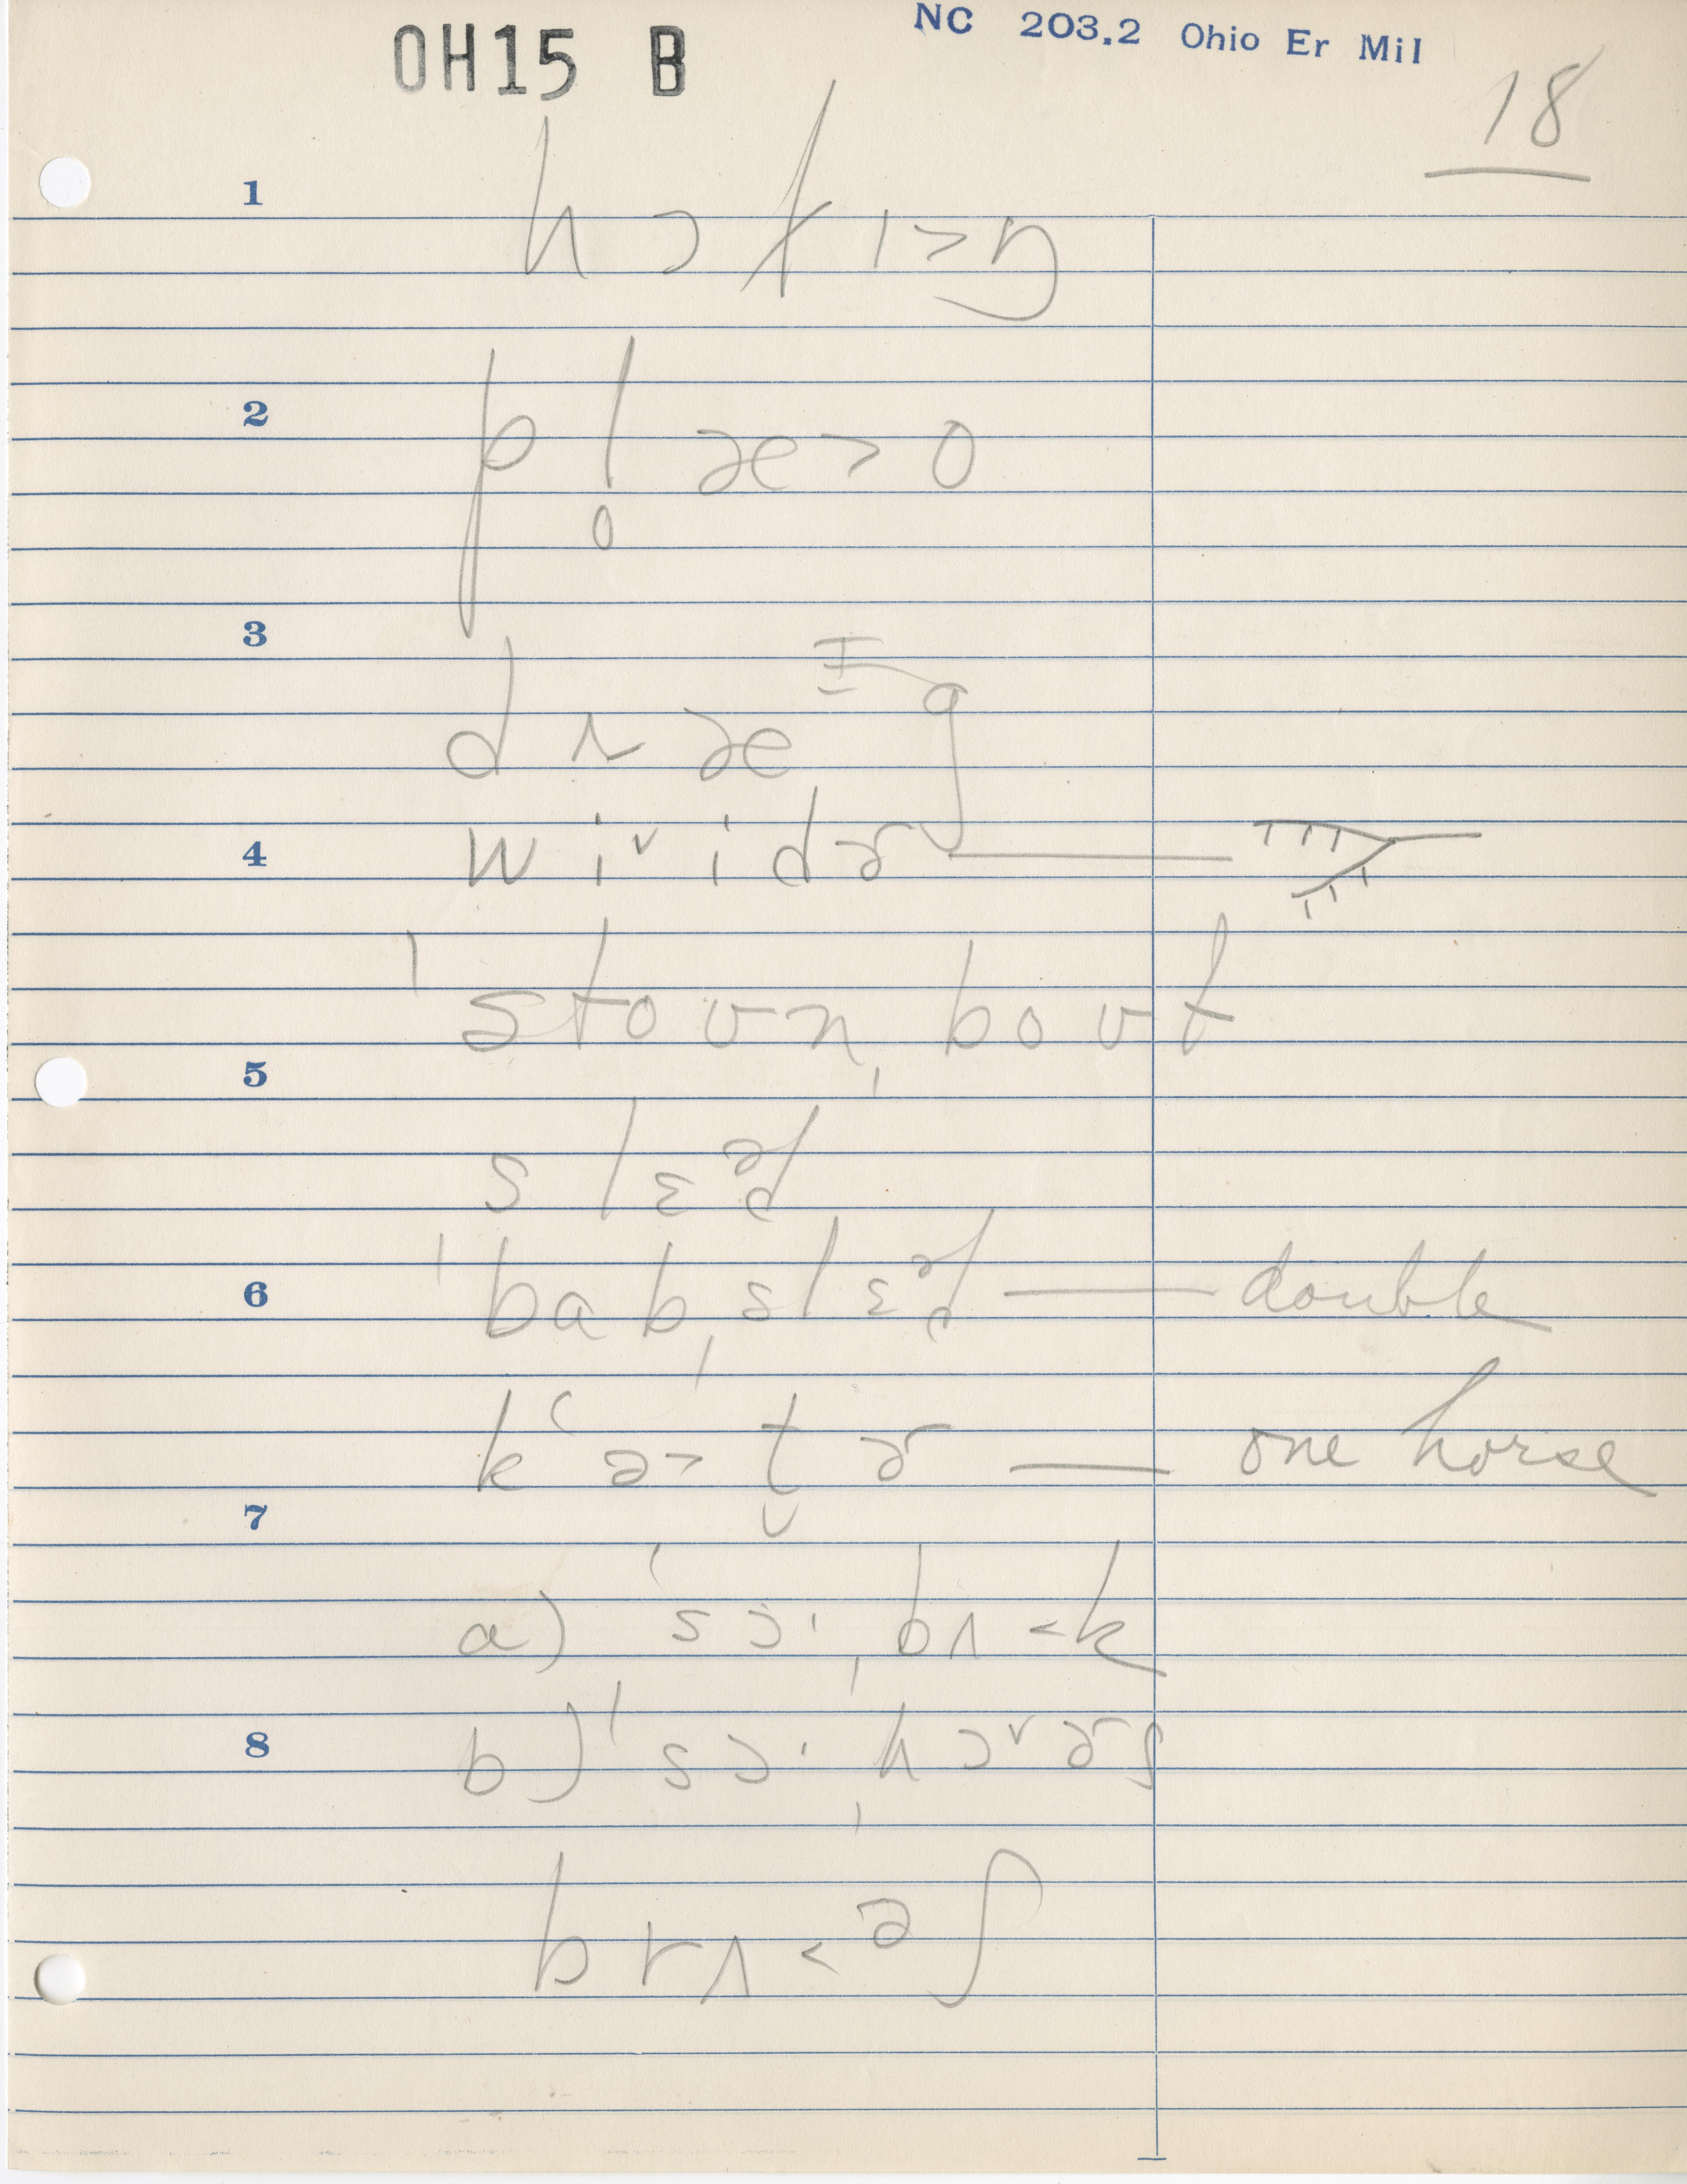 OH15 B
NC 203.2 Ohio Er Mil
18
1
2
pl̥æ˃o
3
dræᴵg
4
wiˇidɚ
ˈstoʊnˌboʊt
5
slɛᵊd
6
ˈbabˌslɛᵊd — double
kʻə˃t̬ɚ — one horse
7
a) ˈsɔ·ˌbʌ˂k
b) ˈsɔ·ˌhɔˇɚs
8
brʌ˂ᵊʃ